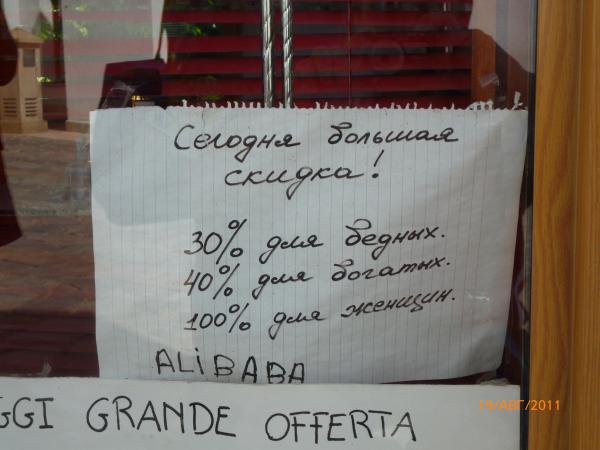 Сегодня большая
скидка!
30% для бедных.
40% для богатых.
100% для женщин.
ALiBABA
GGI GRANDE OFFERTA
19/АВГ/2011